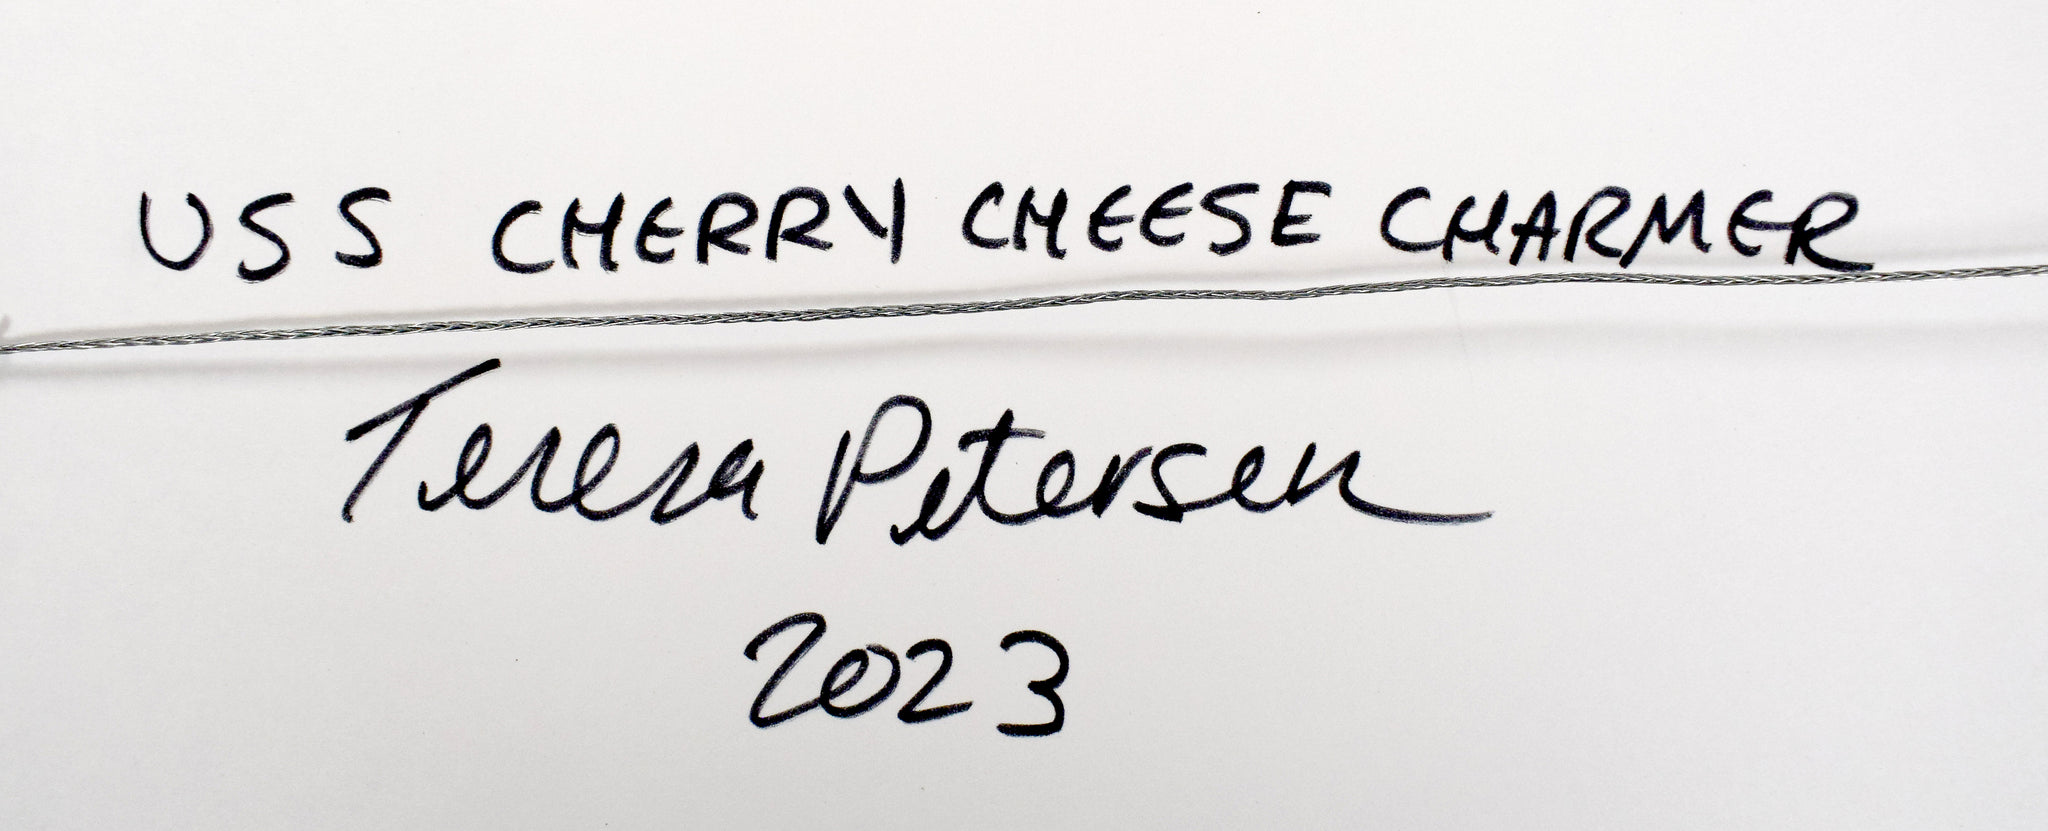 USS CHERRY CHEESE CHARMER
Teresa Petersen
2023